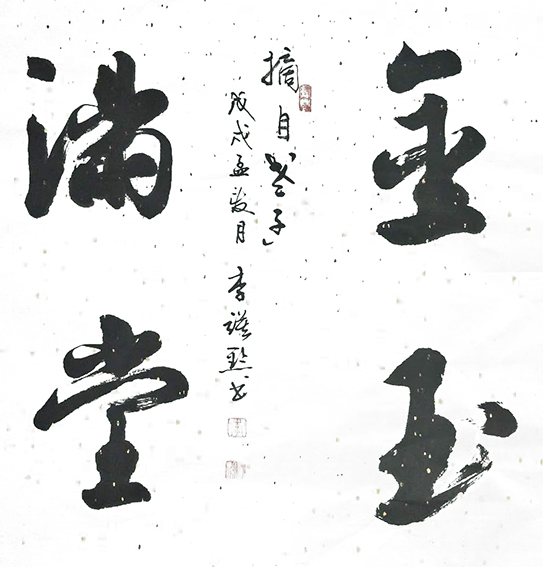 金玉
满堂
摘自《老子》
戊戌孟夏月 李书